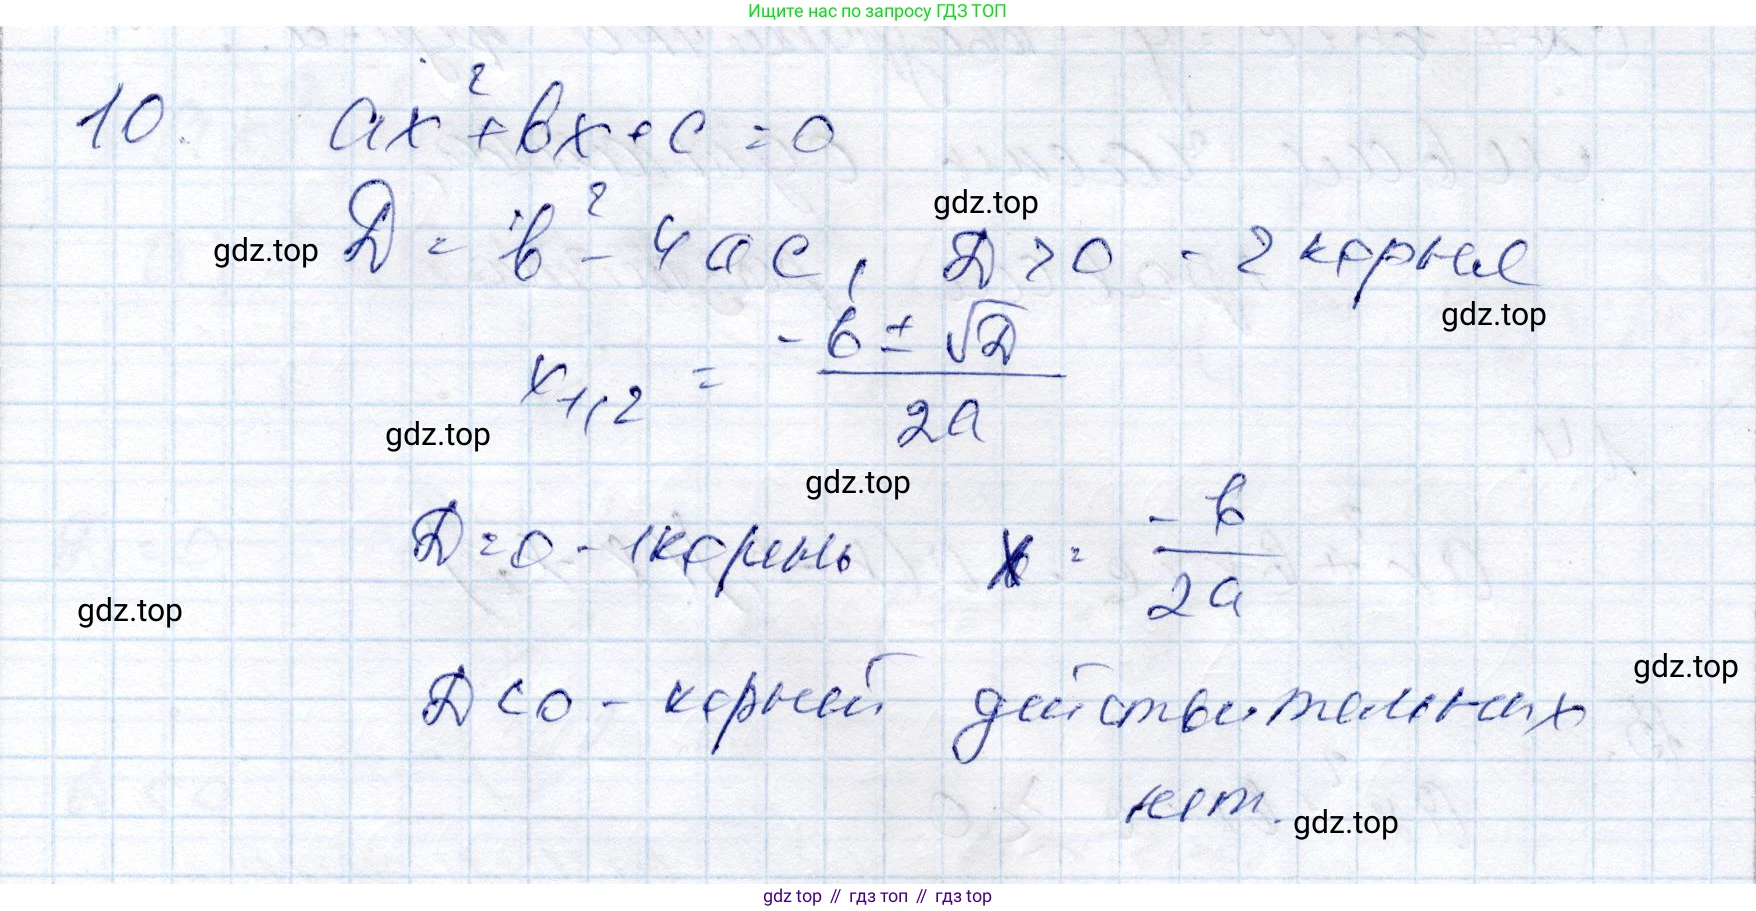 Ищите нас по запросу ГДЗ ТОП
10. ax² + bx + c = 0
gdz.top
D = b² - 4ac, D > 0 - 2 корня
gdz.top
gdz.top
x₁,₂ = -b ± √D / 2a
gdz.top
gdz.top
D = 0 - 1 корень x = -b / 2a
gdz.top
gdz.top
D < 0 - корней действительных
нет.
gdz.top
gdz top // гдз топ // гдз top